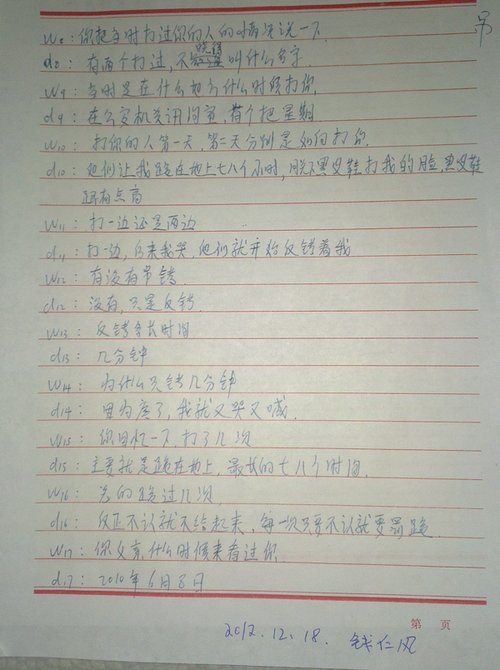 W8：你把当时打过你的人的情况说一下
d8：有两个打过，不晓得叫什么名字
W9：当时是在什么地方什么时候打你
d9：在公安机关讯问室，有个把星期
W10：打你的人第一天，第二天分别是如何打你
d10：他们让我跪在地上七八个小时，用黑皮鞋打我的脸，黑皮鞋
跟有点高
W11：打一边还是两边
d11：打一边，后来我哭，他们就开始反铐着我
W12：有没有吊铐
d12：没有，只是反铐
W13：反铐多长时间
d13：几分钟
W14：为什么只铐几分钟
d14：因为疼了，我就又哭又喊
W15：你回忆一下，打了几次
d15：主要就是跪在地上，最长的七八个时间
W16：总的跪过几次
d16：反正不认就不给起来，每一次只要不认就要罚跪
W17：你父亲什么时候来看过你
d17：2010年6月8日
第 页
2012.12.18. 钱仁风